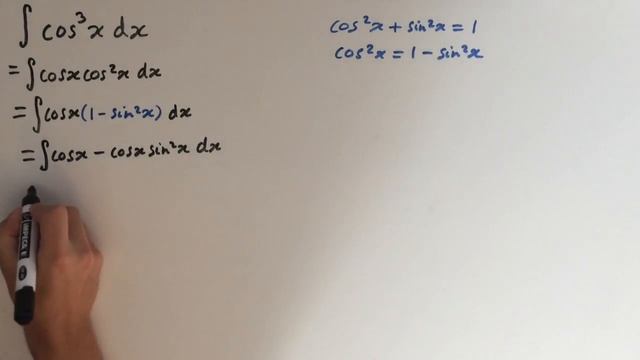 ∫ cos³x dx
= ∫ cosx cos²x dx
= ∫ cosx (1 − sin²x) dx
= ∫ cosx − cosx sin²x dx
cos²x + sin²x = 1
cos²x = 1 − sin²x